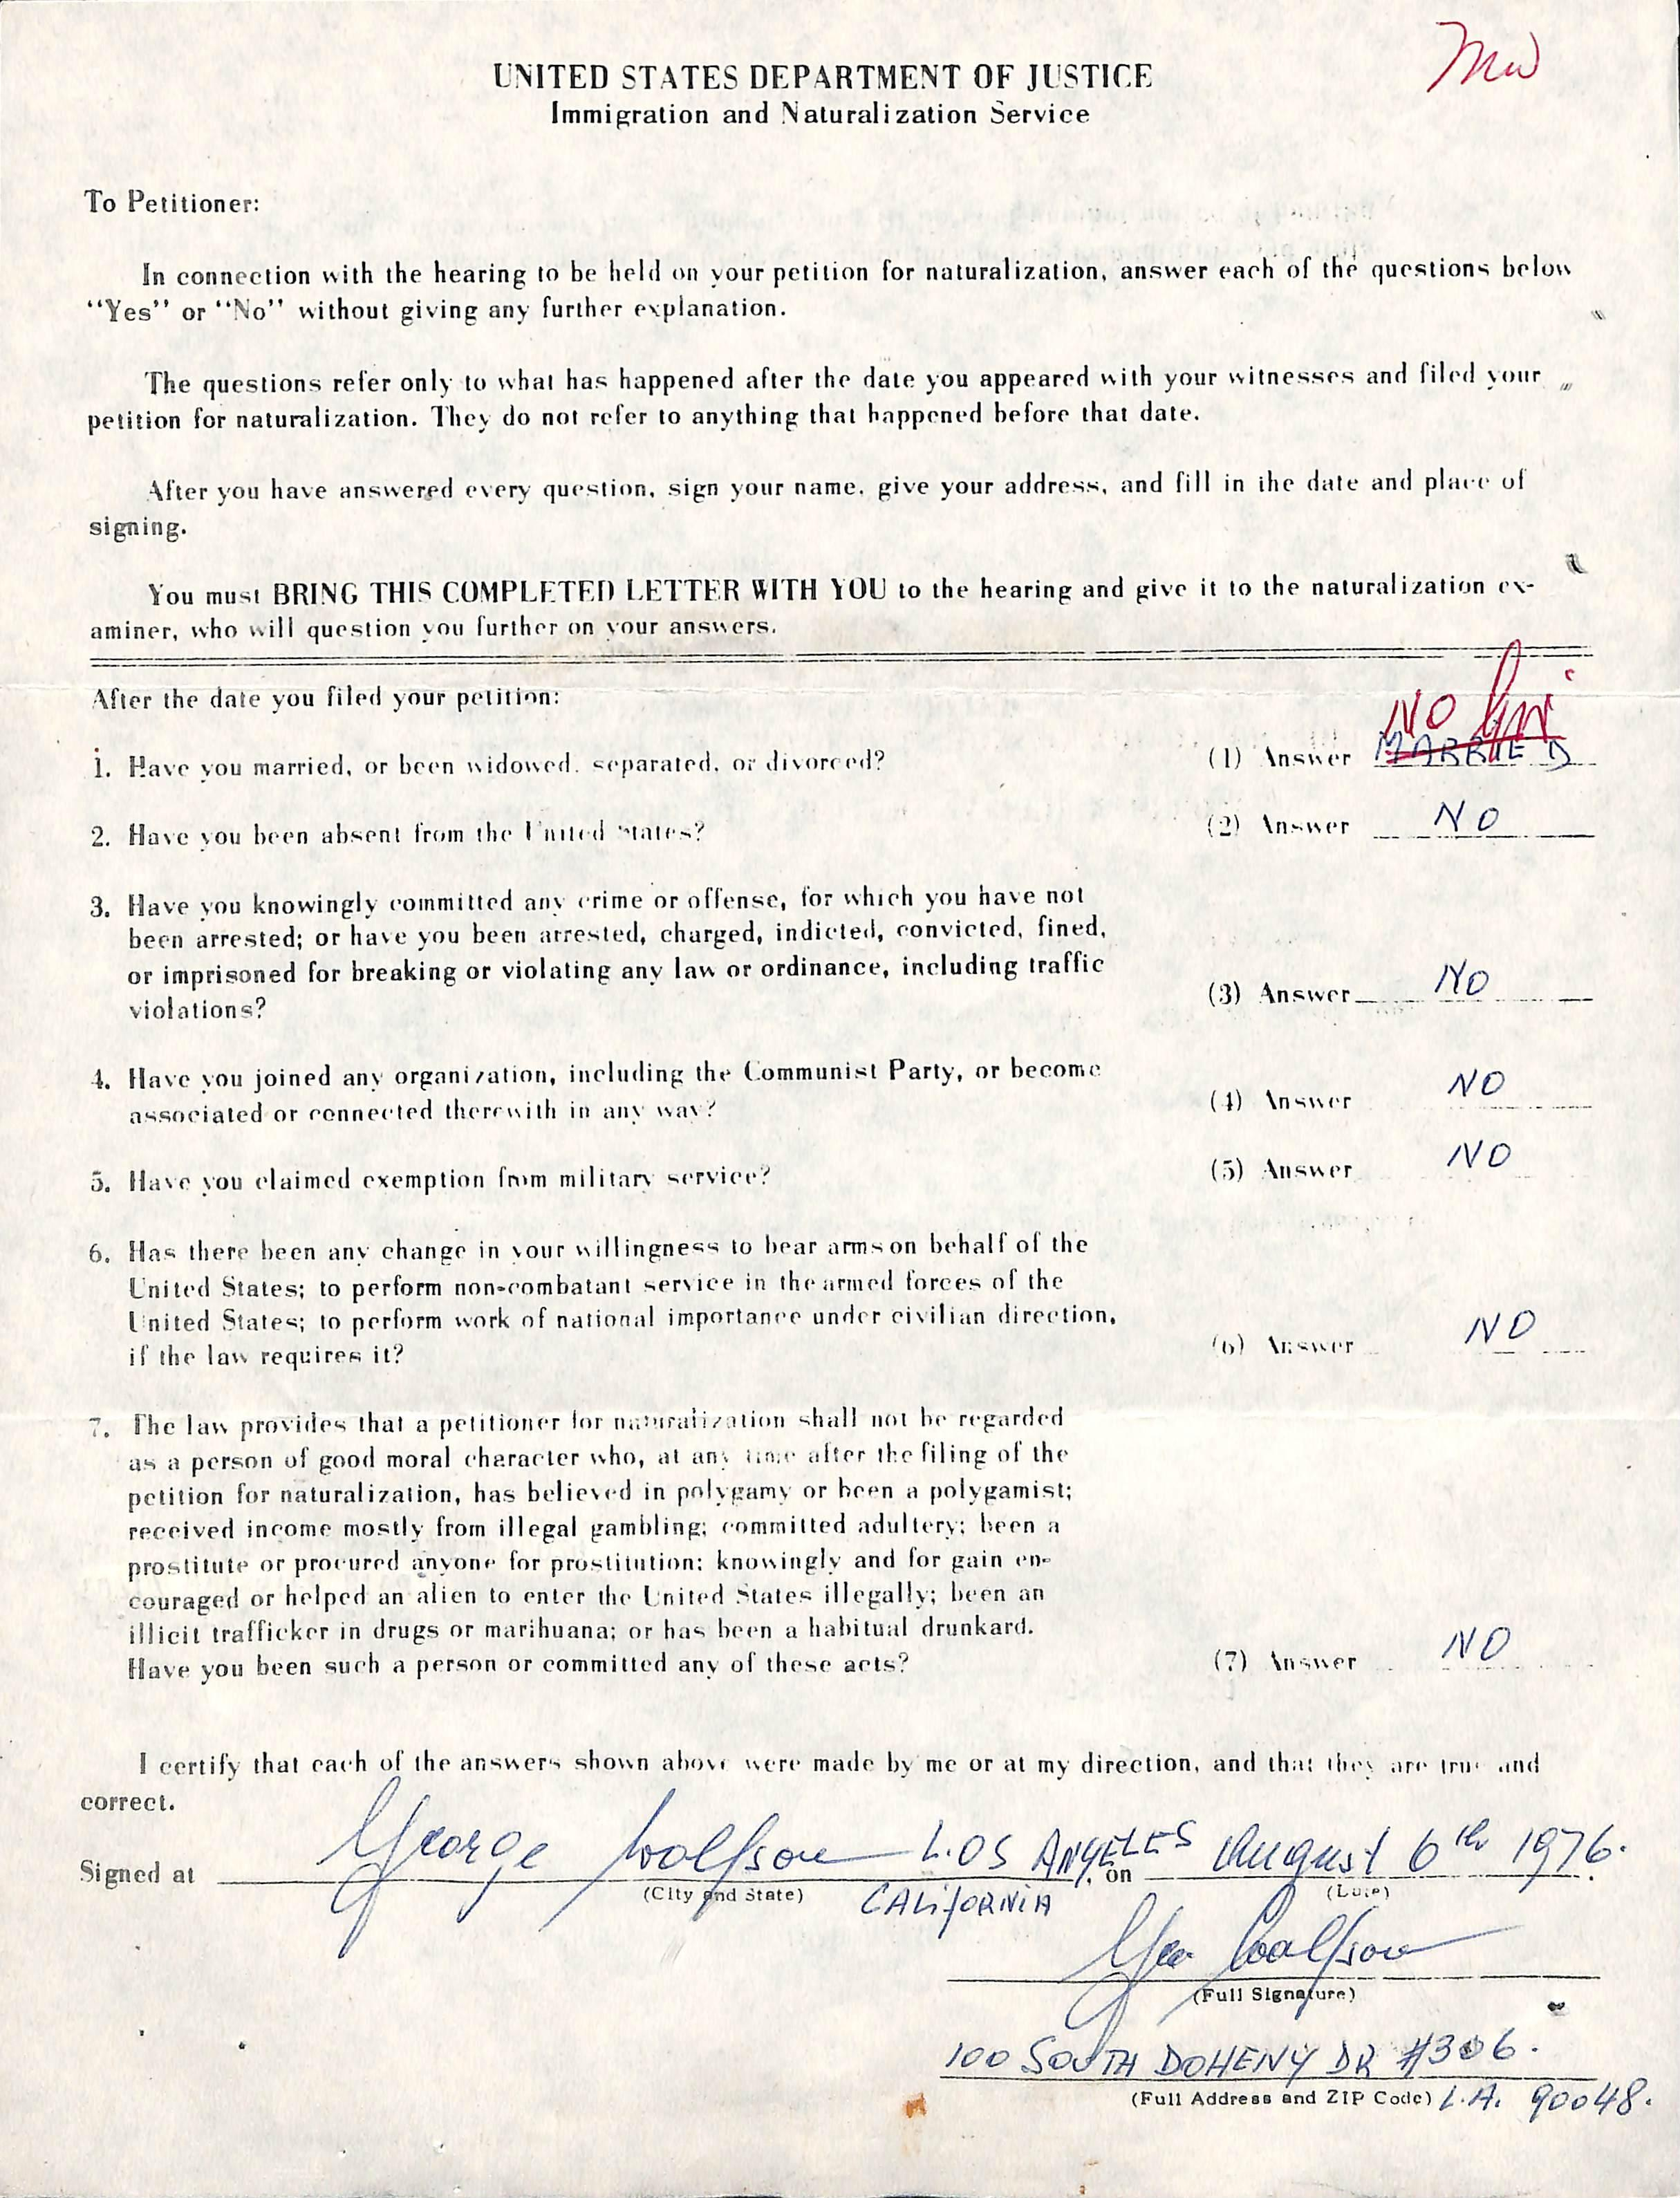 UNITED STATES DEPARTMENT OF JUSTICE
Immigration and Naturalization Service
To Petitioner:
In connection with the hearing to be held on your petition for naturalization, answer each of the questions below
"Yes" or "No" without giving any further explanation.
The questions refer only to what has happened after the date you appeared with your witnesses and filed your
petition for naturalization. They do not refer to anything that happened before that date.
After you have answered every question, sign your name, give your address, and fill in the date and place of
signing.
You must BRING THIS COMPLETED LETTER WITH YOU to the hearing and give it to the naturalization ex-
aminer, who will question you further on your answers.
After the date you filed your petition:
NO
1. Have you married, or been widowed, separated, or divorced? (1) Answer MARRIED
2. Have you been absent from the United States? (2) Answer NO
3. Have you knowingly committed any crime or offense, for which you have not
been arrested; or have you been arrested, charged, indicted, convicted, fined,
or imprisoned for breaking or violating any law or ordinance, including traffic
violations? (3) Answer NO
4. Have you joined any organization, including the Communist Party, or become
associated or connected therewith in any way? (4) Answer NO
5. Have you claimed exemption from military service? (5) Answer NO
6. Has there been any change in your willingness to bear arms on behalf of the
United States; to perform non-combatant service in the armed forces of the
United States; to perform work of national importance under civilian direction,
if the law requires it? (6) Answer NO
7. The law provides that a petitioner for naturalization shall not be regarded
as a person of good moral character who, at any time after the filing of the
petition for naturalization, has believed in polygamy or been a polygamist;
received income mostly from illegal gambling; committed adultery; been a
prostitute or procured anyone for prostitution; knowingly and for gain en-
couraged or helped an alien to enter the United States illegally; been an
illicit trafficker in drugs or marihuana; or has been a habitual drunkard.
Have you been such a person or committed any of these acts? (7) Answer NO
I certify that each of the answers shown above were made by me or at my direction, and that they are true and
correct.
Signed at George Wolfson LOS ANGELES, on August 6th 1976.
(City and State) CALIFORNIA (Date)
Geo Wolfson
(Full Signature)
100 SOUTH DOHENY DR #306.
(Full Address and ZIP Code) L.A. 90048.